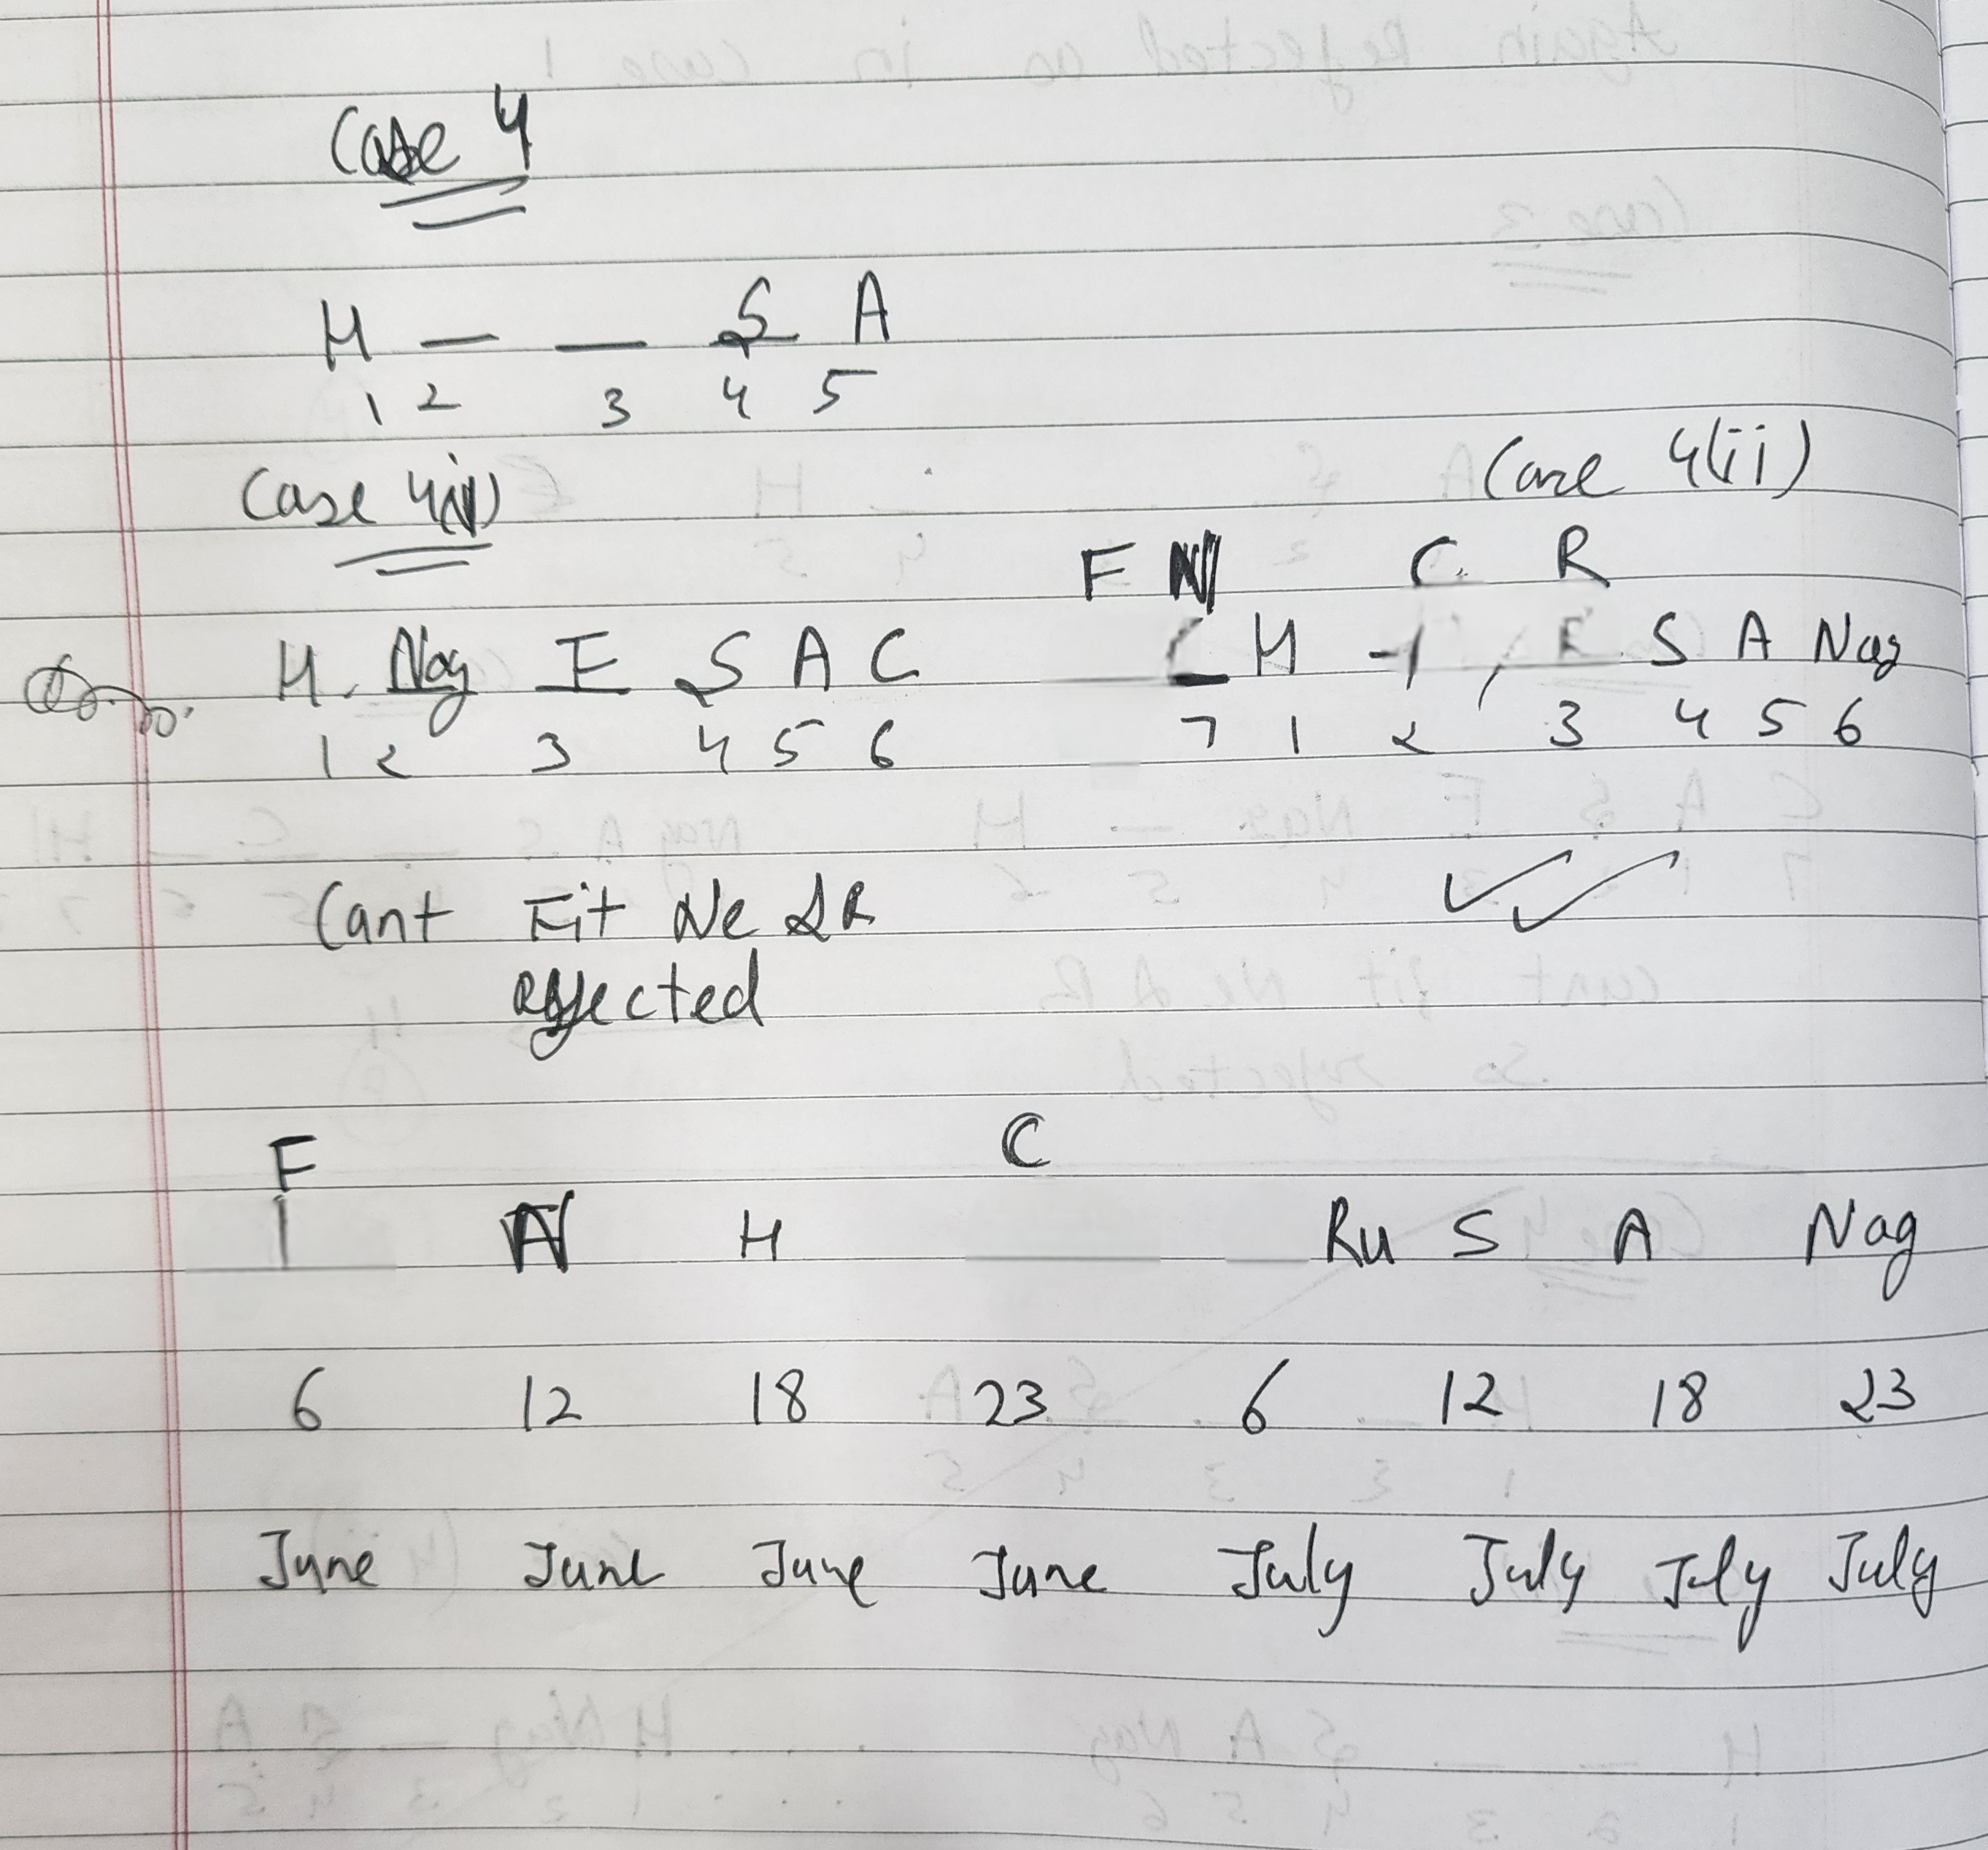 Case 4
H — — S A
1 2 3 4 5
Case 4(i) Case 4(ii)
F N C R
H Nag F S A C H S A Nag
1 2 3 4 5 6 7 1 2 3 4 5 6
Cant Fit Ne & R
rejected
F C
N H Ru S A Nag
6 12 18 23 6 12 18 23
June June June June July July July July